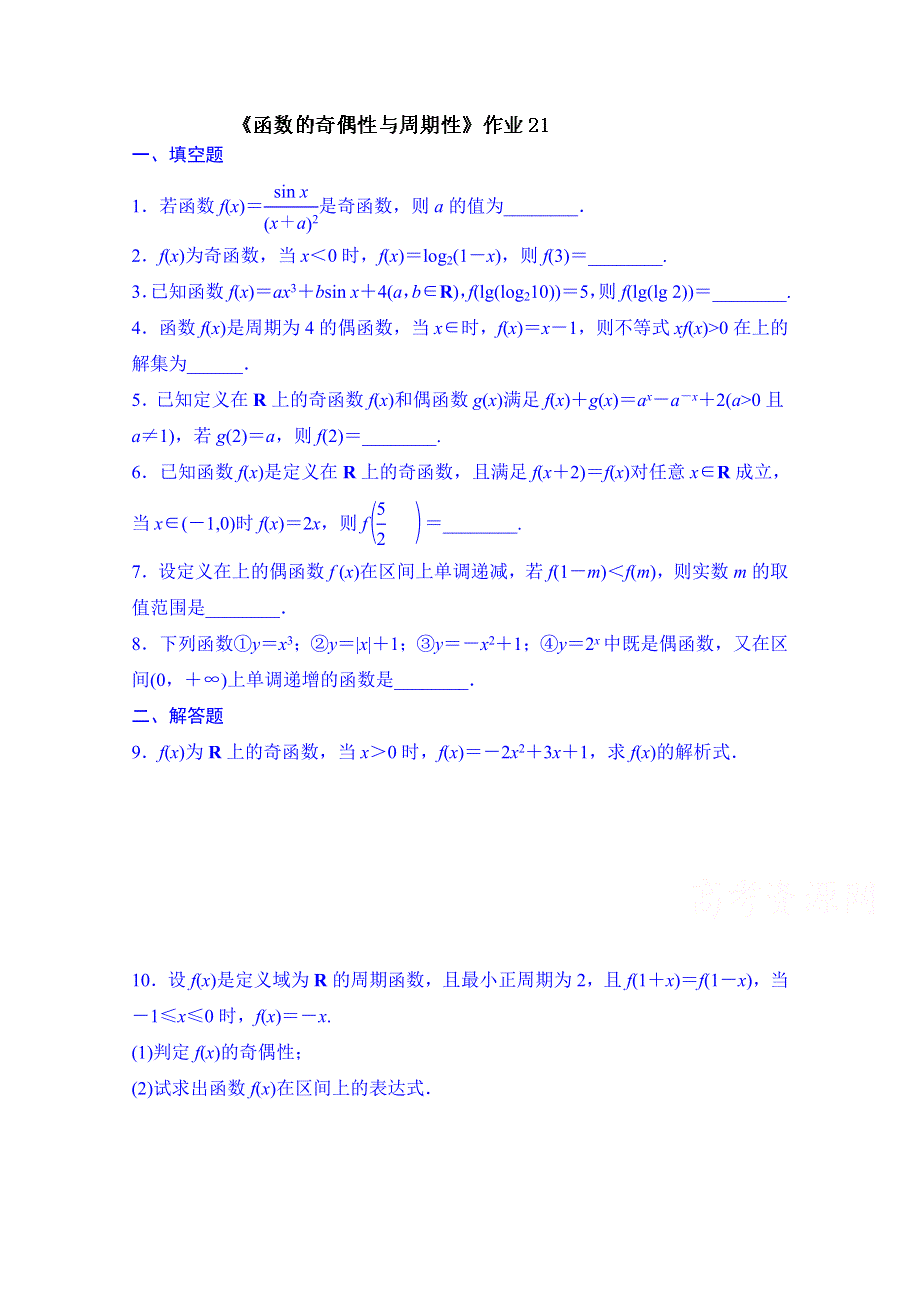 《函数的奇偶性与周期性》作业21
一、填空题
1．若函数 f(x)＝sin x/(x＋a)²是奇函数，则 a 的值为________．
2．f(x)为奇函数，当 x＜0 时，f(x)＝log₂(1－x)，则 f(3)＝________.
3.已知函数 f(x)＝ax³＋bsin x＋4(a，b∈R)，f(lg(log₂10))＝5，则 f(lg(lg 2))＝________.
4．函数 f(x)是周期为 4 的偶函数，当 x∈时，f(x)＝x－1，则不等式 xf(x)>0 在上的
解集为______．
5．已知定义在 R 上的奇函数 f(x)和偶函数 g(x)满足 f(x)＋g(x)＝aˣ－a⁻ˣ＋2(a>0 且
a≠1)，若 g(2)＝a，则 f(2)＝________.
6．已知函数 f(x)是定义在 R 上的奇函数，且满足 f(x＋2)＝f(x)对任意 x∈R 成立，
当 x∈(－1,0)时 f(x)＝2x，则 f(5/2)＝________.
7．设定义在上的偶函数 f (x)在区间上单调递减，若 f(1－m)＜f(m)，则实数 m 的取
值范围是________．
8．下列函数①y＝x³；②y＝|x|＋1；③y＝－x²＋1；④y＝2ˣ中既是偶函数，又在区
间(0，＋∞)上单调递增的函数是________．
二、解答题
9．f(x)为 R 上的奇函数，当 x＞0 时，f(x)＝－2x²＋3x＋1，求 f(x)的解析式．
高考资源网
10．设 f(x)是定义域为 R 的周期函数，且最小正周期为 2，且 f(1＋x)＝f(1－x)，当
－1≤x≤0 时，f(x)＝－x.
(1)判定 f(x)的奇偶性；
(2)试求出函数 f(x)在区间上的表达式．